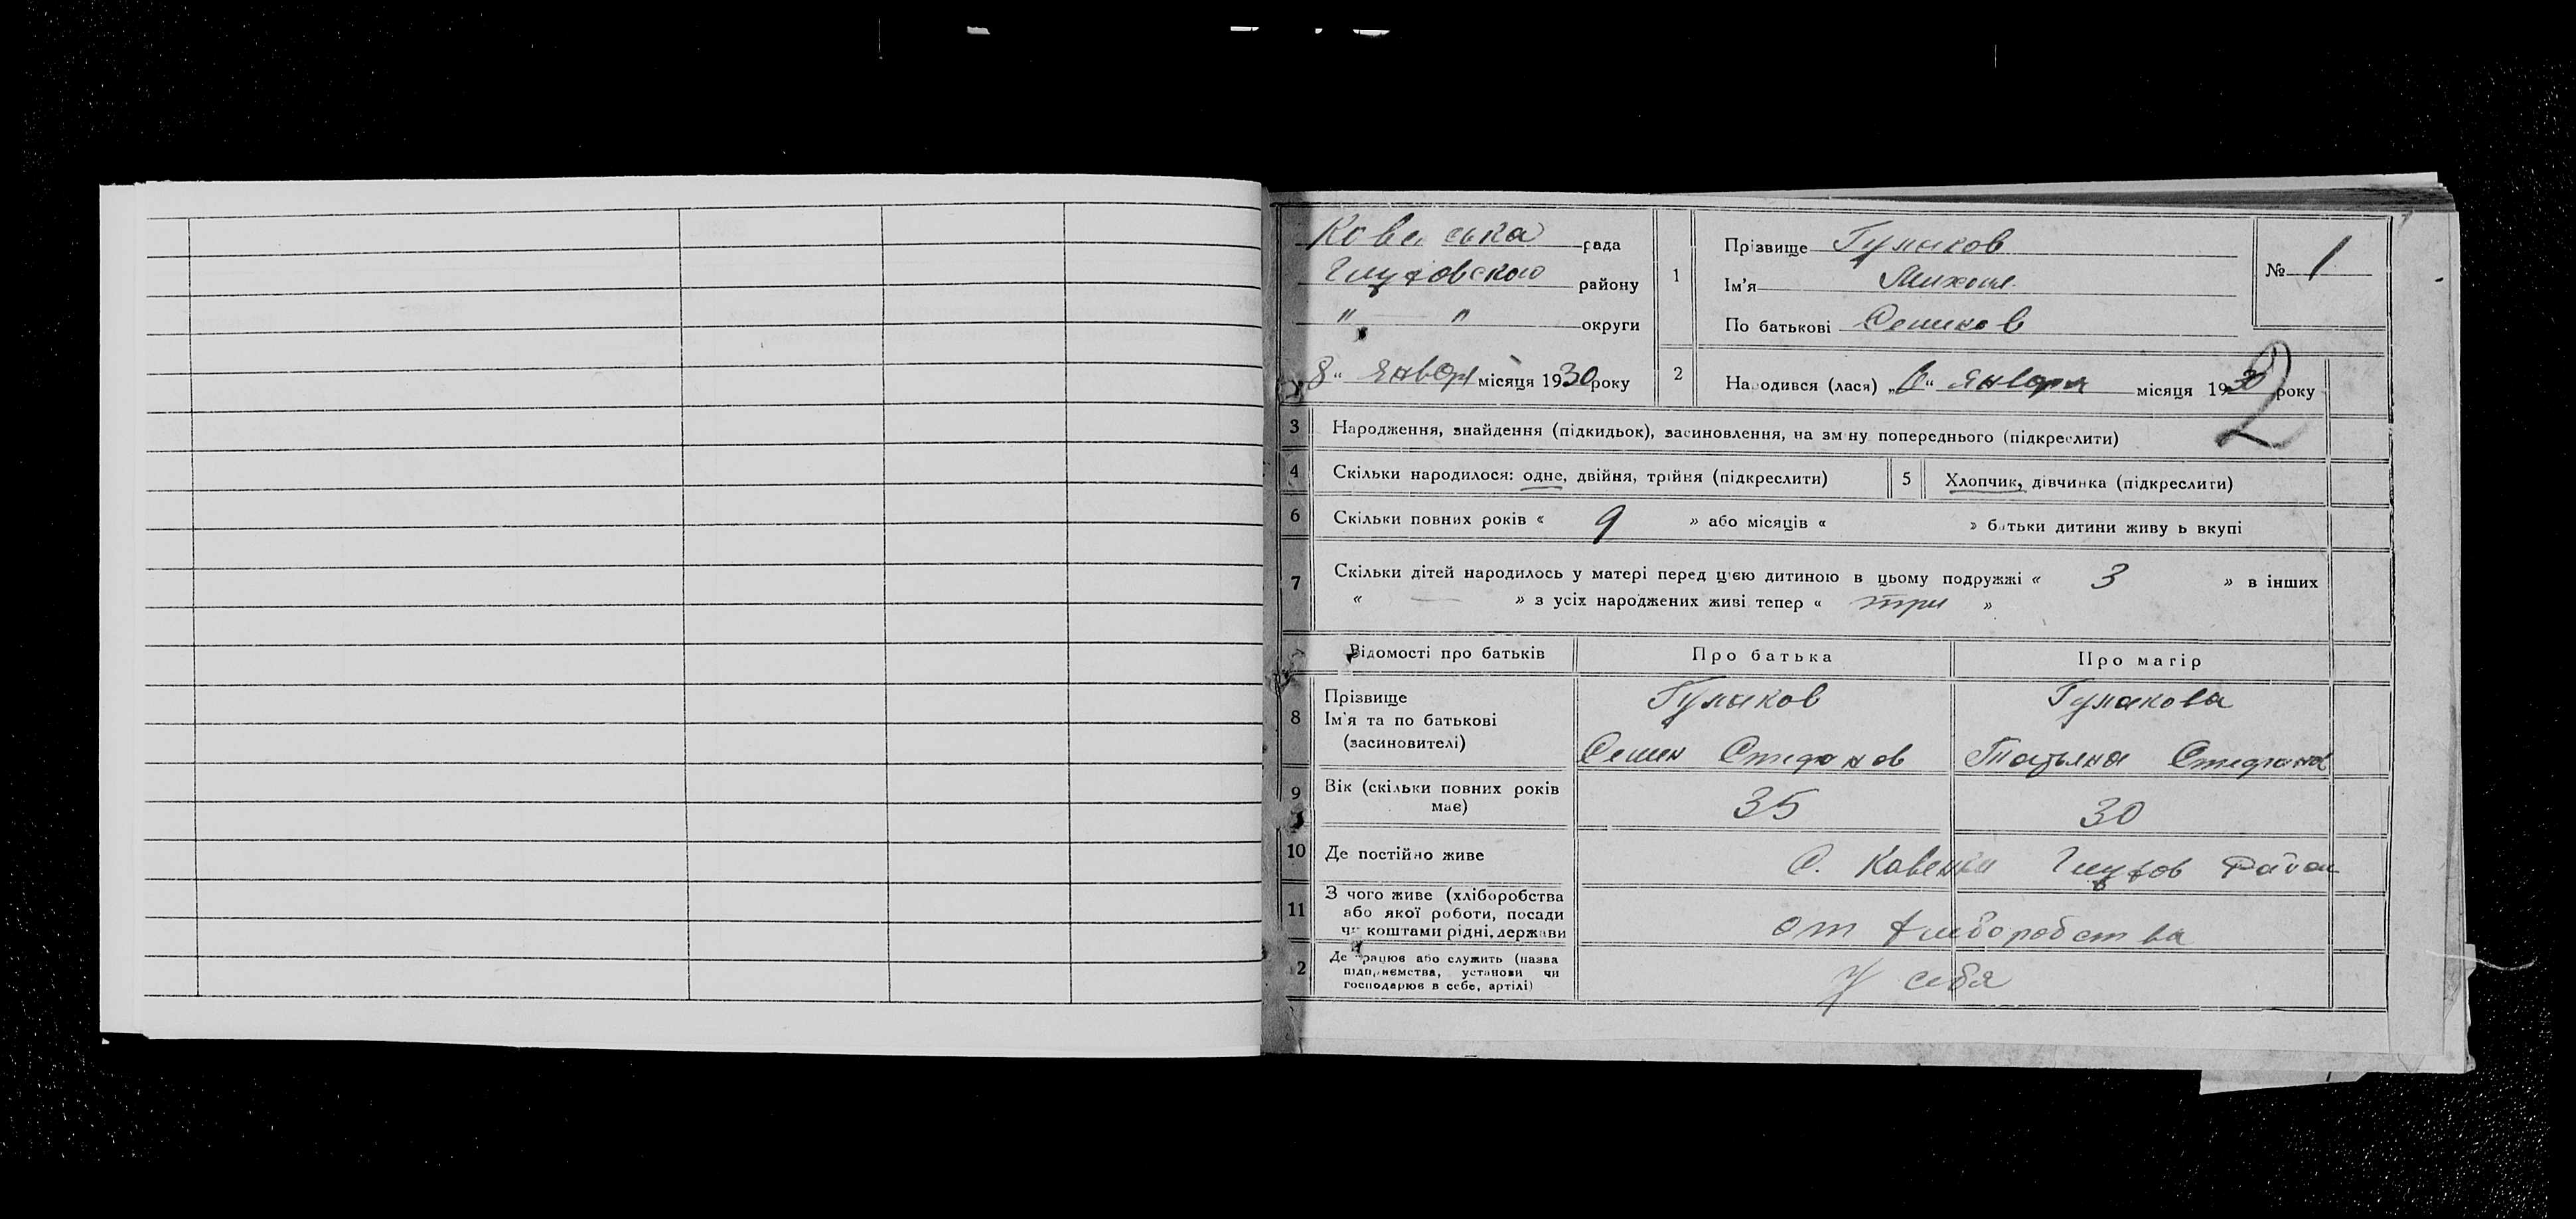 Ковенська рада
Глуховского району
" — " округи
8 " января місяця 1930 року
1
Прізвище Гулаков
Ім'я Михаил
По батькові Семенов
№ 1
2
Народився (лася) „6" января місяця 1930 року
2
3 Народження, знайдення (підкидьок), засиновлення, на зміну попереднього (підкреслити)
4 Скільки народилося: одне, двійня, трійня (підкреслити)
5 Хлопчик, дівчинка (підкреслити)
6 Скільки повних років « 9 » або місяців « » батьки дитини живуть вкупі
7 Скільки дітей народилось у матері перед цією дитиною в цьому подружжі « 3 » в інших
« — » з усіх народжених живі тепер « три »
Відомості про батьків Про батька Про матір
8 Прізвище
Ім'я та по батькові
(засиновителі)
Гулаков
Семен Стефанов
Гулакова
Татьяна Стефанов
9 Вік (скільки повних років
має)
35 30
10 Де постійно живе С. Кавенки Глухов Район
11 З чого живе (хліборобства
або якої роботи, посади
чи коштами рідні, держави
от хлиборобства
12 Де працює або служить (назва
підприємства, установи чи
господарює в себе, артілі)
У себя